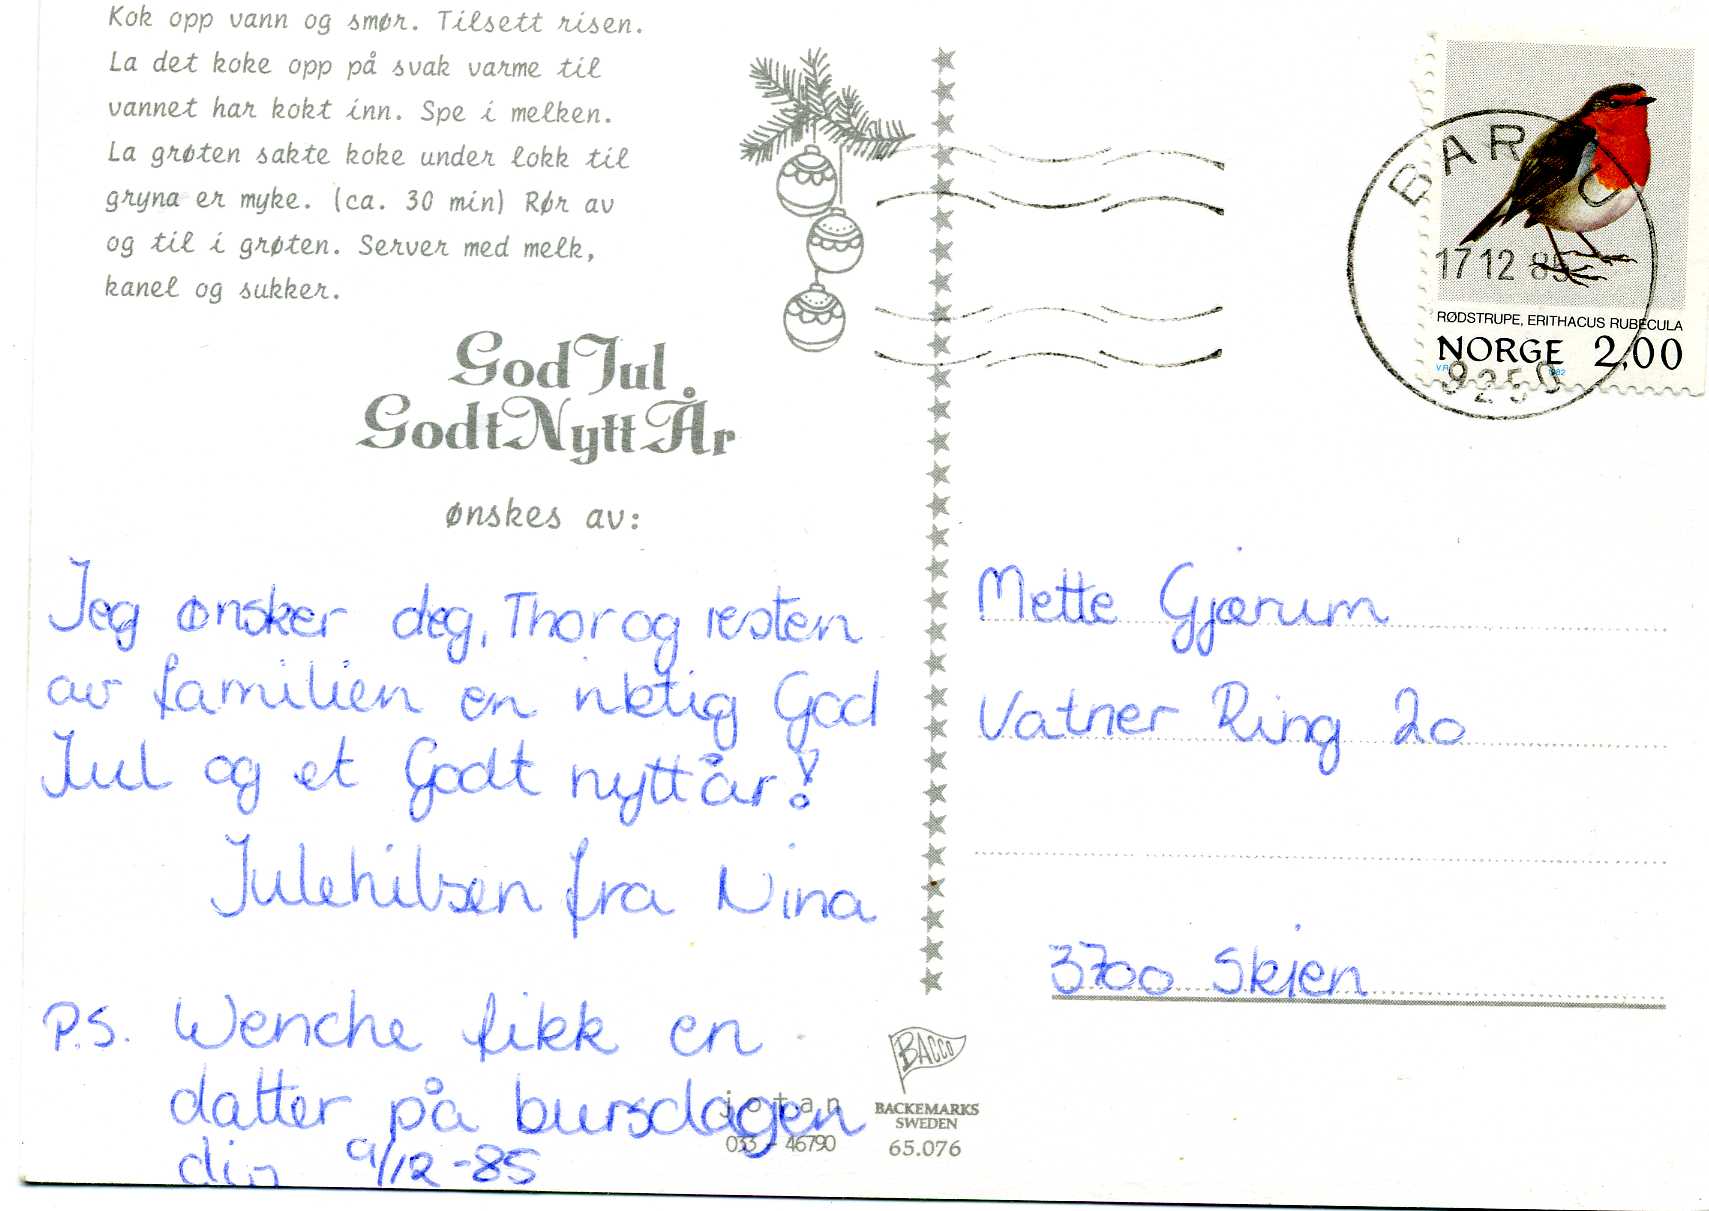 Kok opp vann og smør. Tilsett risen.
La det koke opp på svak varme til
vannet har kokt inn. Spe i melken.
La grøten sakte koke under lokk til
gryna er myke. (ca. 30 min) Rør av
og til i grøten. Server med melk,
kanel og sukker.
God Jul
Godt Nytt År
ønskes av:
Jeg ønsker deg, Thor og resten
av familien en riktig God
Jul og et Godt nytt år!
Julehilsen fra Nina
P.S. Wenche fikk en
datter på bursdagen
din 9/12-85
jotan
033 - 46790
BACCO
BACKEMARKS
SWEDEN
65.076
BARDU
17 12 85
9250
RØDSTRUPE, ERITHACUS RUBECULA
NORGE 2,00
1982
Mette Gjærum
Vatner Ring 20
3700 Skien